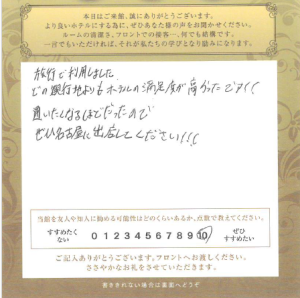 本日はご来館、誠にありがとうございます。
より良いホテルにする為に、ぜひあなた様の声をお聞かせください。
ルームの清潔さ、フロントでの接客…、何でも結構です。
一言でもいただければ、それが私たちの学びとなり励みになります。
旅行で利用しました
どの観光地よりもホテルの満足度が高かったです!!
住みたくなるほどだったので
ぜひ名古屋に出店してください!!!
当館を友人や知人に勧める可能性はどのくらいあるか、点数で教えてください。
すすめたくない 0 1 2 3 4 5 6 7 8 9 10 ぜひすすめたい
ご記入ありがとうございます。フロントへお渡しください。
ささやかなお礼をさせていただきます。
書ききれない場合は裏面へどうぞ